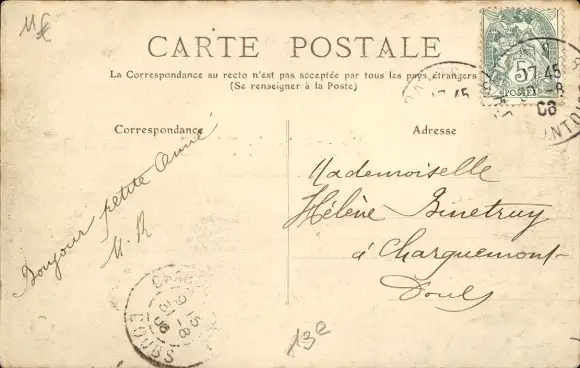 CARTE POSTALE
La Correspondance au recto n'est pas acceptée par tous les pays étrangers
(Se renseigner à la Poste)
Correspondance
Adresse
Bonjour petite Amie
M. R
Mademoiselle
Hélène Binetruy
à Charquemont
Doubs
5
POSTES
17 45
-8
08
ANTOI
9 15
31 -8
08
DOUBS
13e